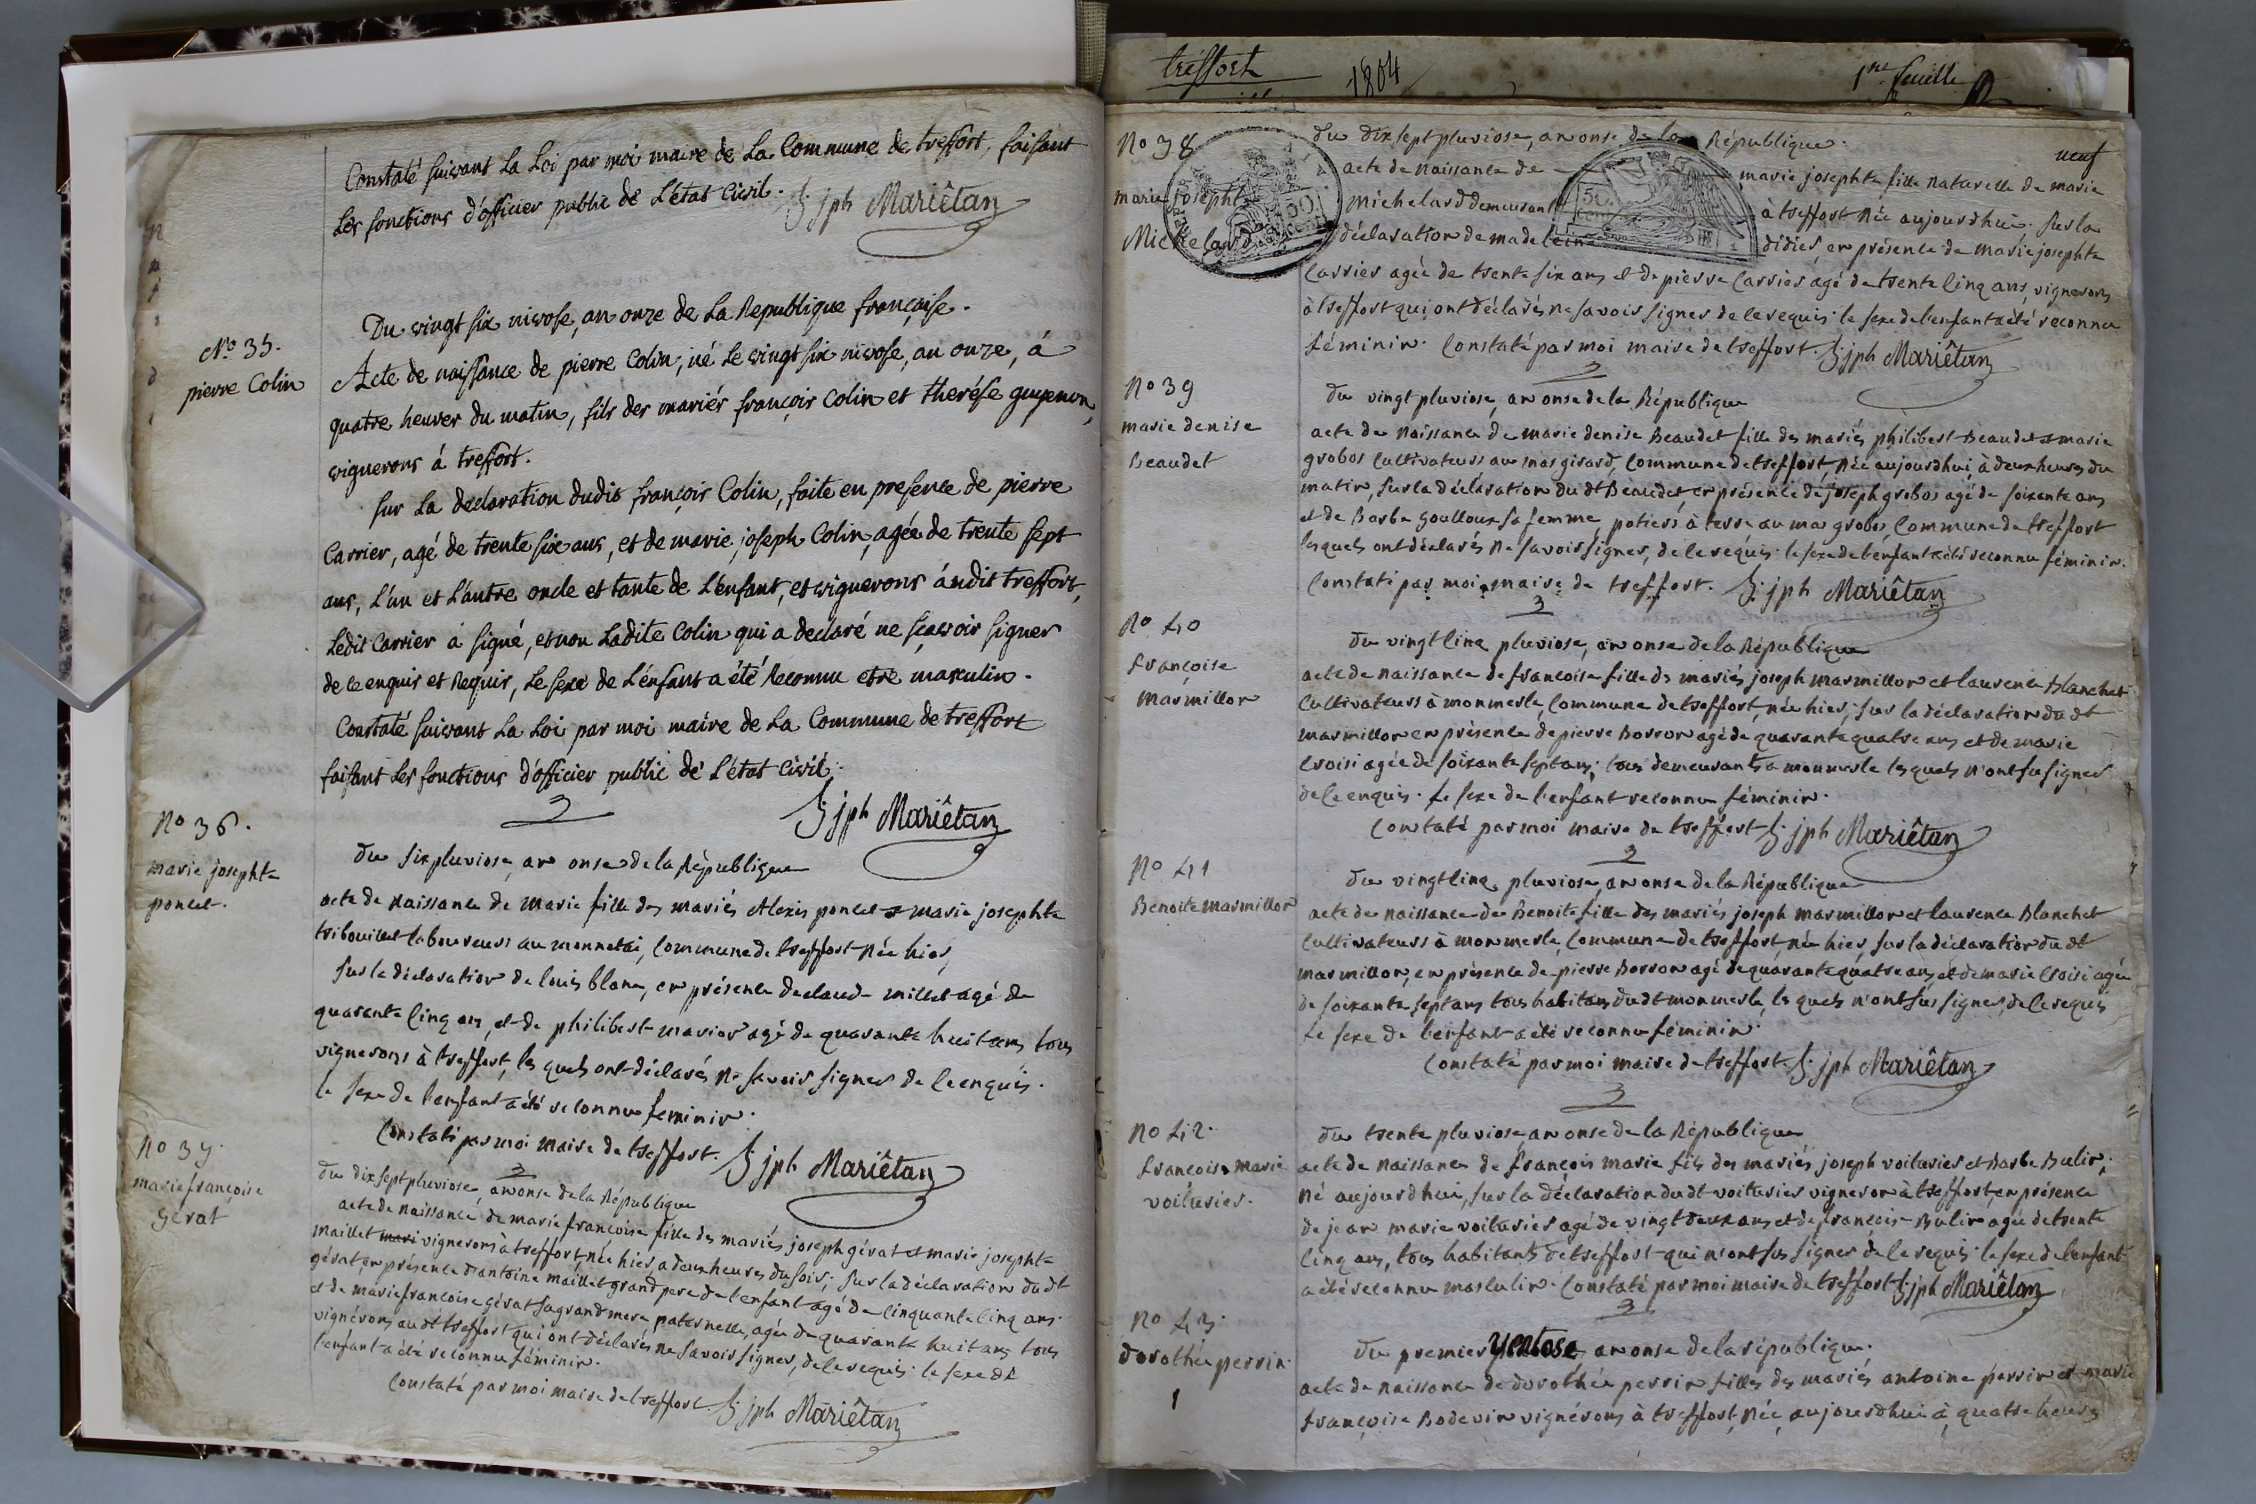 Constaté suivant La Loi par moi maire de La Commune de treffort, faisant
Les fonctions d'officier public de L'état Civil. jph Mariêtan
No 35.
pierre Colin
Du vingt six nivose, an onze de La Republique française.
Acte de naissance de pierre Colin, né Le vingt six nivose, an onze, á
quatre heures du matin, fils des mariés françois Colin et therése guyenon,
vignerons á treffort.
sur La declaration dudit françois Colin, faite en presence de pierre
Carrier, agé de trente six ans, et de marie joseph Colin, agée de trente sept
ans, L'un et L'autre oncle et tante de L'enfant, et vignerons áudit treffort,
Ledit Carrier a signé, et non Ladite Colin qui a declaré ne sçavoir signer
de ce enquis et Requis, Le sexe de L'enfant a été Reconnu etre masculin.
Constaté suivant La Loi par moi maire de La Commune de treffort
faisant Les fonctions d'officier public de L'état Civil.
jph Mariêtan
No 36.
marie josephte
poncet.
du six pluviose, an onse de la République
acte de naissance de marie fille des mariés Alexis poncet et marie josephte
tribouillet laboureurs au monnetai, Commune de treffort née hier,
sur la déclaration de louis blanc, en présence de claude millet agé de
quarante cinq ans, et de philibert marion agé de quarante huit ans tous
vignerons à treffort, les quels ont déclarés ne savoir signer de ce enquis.
le sexe de l'enfant a été reconnu feminin.
Constaté par moi maire de treffort. jph Mariêtan
No 37.
marie françoise
Gérat
du dix sept pluviose, an onse de la République
acte de naissance de marie françoise fille des mariés joseph gérat et marie josephte
maillet vignerons à treffort, née hier a deux heures du soir; sur la déclaration du dt
gérat, en présence d'antoine maillet grand pere de l'enfant agé de cinquante cinq ans.
et de marie françoise gérat sa grand mere paternelle, agée de quarante huit ans tous
vignérons au dt treffort qui ont déclarés ne savoir signer, de ce requis. le sexe de
l'enfant a été reconnu féminin.
Constaté par moi maire de treffort. jph Mariêtan
treffort
1804
1re feuille
neuf
No 38
marie josephte
Michelard
du dix sept pluviose, an onse de la République.
acte de naissance de marie josephte fille naturelle de marie
Michelard demeurante à treffort née aujourdhui; sur la
déclaration de madeleine didier, en présence de marie josephte
Carrier agée de trente six ans et de pierre Carrier agé de trente cinq ans, vignerons
à treffort qui ont déclarés ne savoir signer de ce requis. le sexe de l'enfant a été reconnu
féminin. Constaté par moi maire de treffort. jph Mariêtan
No 39
marie denise
Beaudet
du vingt pluviose, an onse de la République
acte de naissance de marie denise Beaudet fille des mariés philibert Beaudet et marie
grobos Cultivateurs au mas girard, Commune de treffort née aujourdhui, à deux heures du
matin, sur la déclaration du dt Beaudet, en présence de joseph grobos agé de soixante ans
et de Barbe goulloux sa femme, potiers à terre au mas grobos, Commune de treffort
lesquels ont déclarés ne savoir signer, de ce requis. le sexe de l'enfant a été reconnu féminin.
Constaté par moi maire de treffort. jph Mariêtan
No 40
françoise
Marmillon
du vingt cinq pluviose, an onse de la République
acte de naissance de françoise fille des mariés joseph marmillon et laurence Blanchet
Cultivateurs à monmerle, Commune de treffort, née hier; sur la déclaration du dt
marmillon en présence de pierre Borron agé de quarante quatre ans et de marie
Croisi agée de soixante sept ans, tous demeurants a monmerle les quels n'ont su signer
de ce enquis. le sexe de l'enfant reconnu féminin.
Constaté par moi maire de treffort jph Mariêtan
No 41
Benoite marmillon
du vingt cinq pluviose, an onse de la République
acte de naissance de Benoite fille des mariés joseph marmillon et laurence Blanchet
Cultivateurs à monmerle, Commune de treffort, née hier, sur la déclaration du dt
marmillon, en présence de pierre Borron agé de quarante quatre ans, et de marie Croisi agée
de soixante sept ans tous habitans du dt monmerle, les quels n'ont sus signer, de ce requis
le sexe de l'enfant a été reconnu féminin.
Constaté par moi maire de treffort. jph Mariêtan
No 42.
françois marie
voiturier.
du trente pluviose, an onse de la République
acte de naissance de françois marie fils des mariés joseph voiturier et Barbe Bulin;
né aujourdhui, sur la déclaration du dt voiturier vigneron à treffort, en présence
de jean marie voiturier agé de vingt deux ans et de françoise Bulin agée de trente
cinq ans, tous habitants de treffort qui n'ont sus signer de ce requis. le sexe de l'enfant
a été reconnu masculin. Constaté par moi maire de treffort jph Mariêtan
No 43.
dorothée perrin.
1
du premier Ventose an onse de la république.
acte de naissance de dorothée perrin fille des mariés antoine perrin et marie
françoise Bodevin vignérons à treffort, née aujourdhui à quatre heures